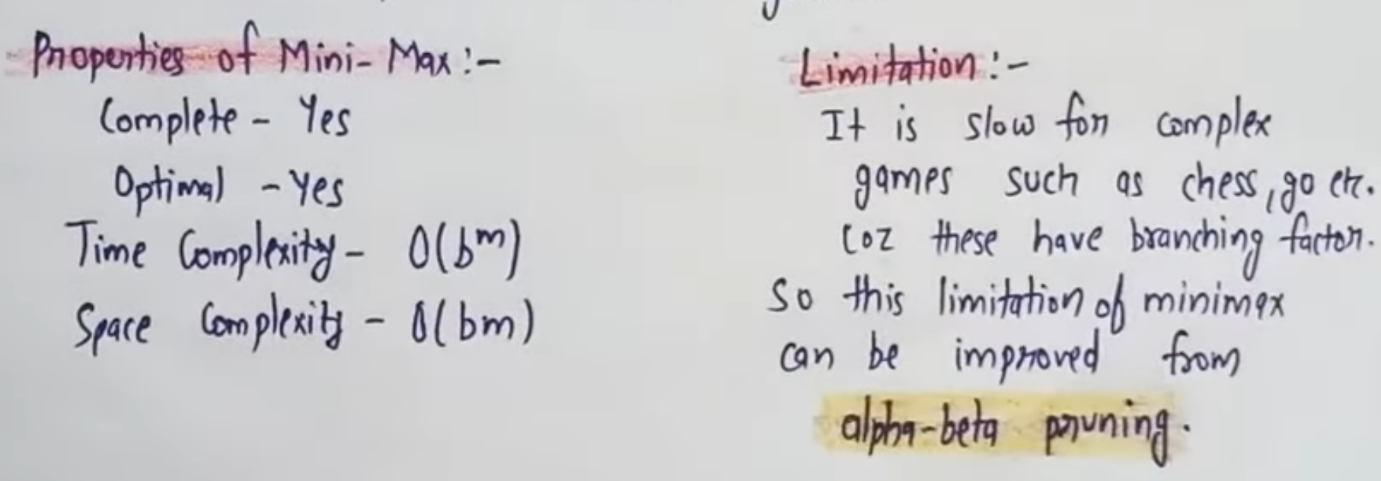 Properties of Mini-Max:-
Complete - Yes
Optimal - Yes
Time Complexity - O(b^m)
Space Complexity - O(bm)
Limitation:-
It is slow for complex
games such as chess, go etc.
Coz these have branching factor.
So this limitation of minimax
can be improved from
alpha-beta pruning.